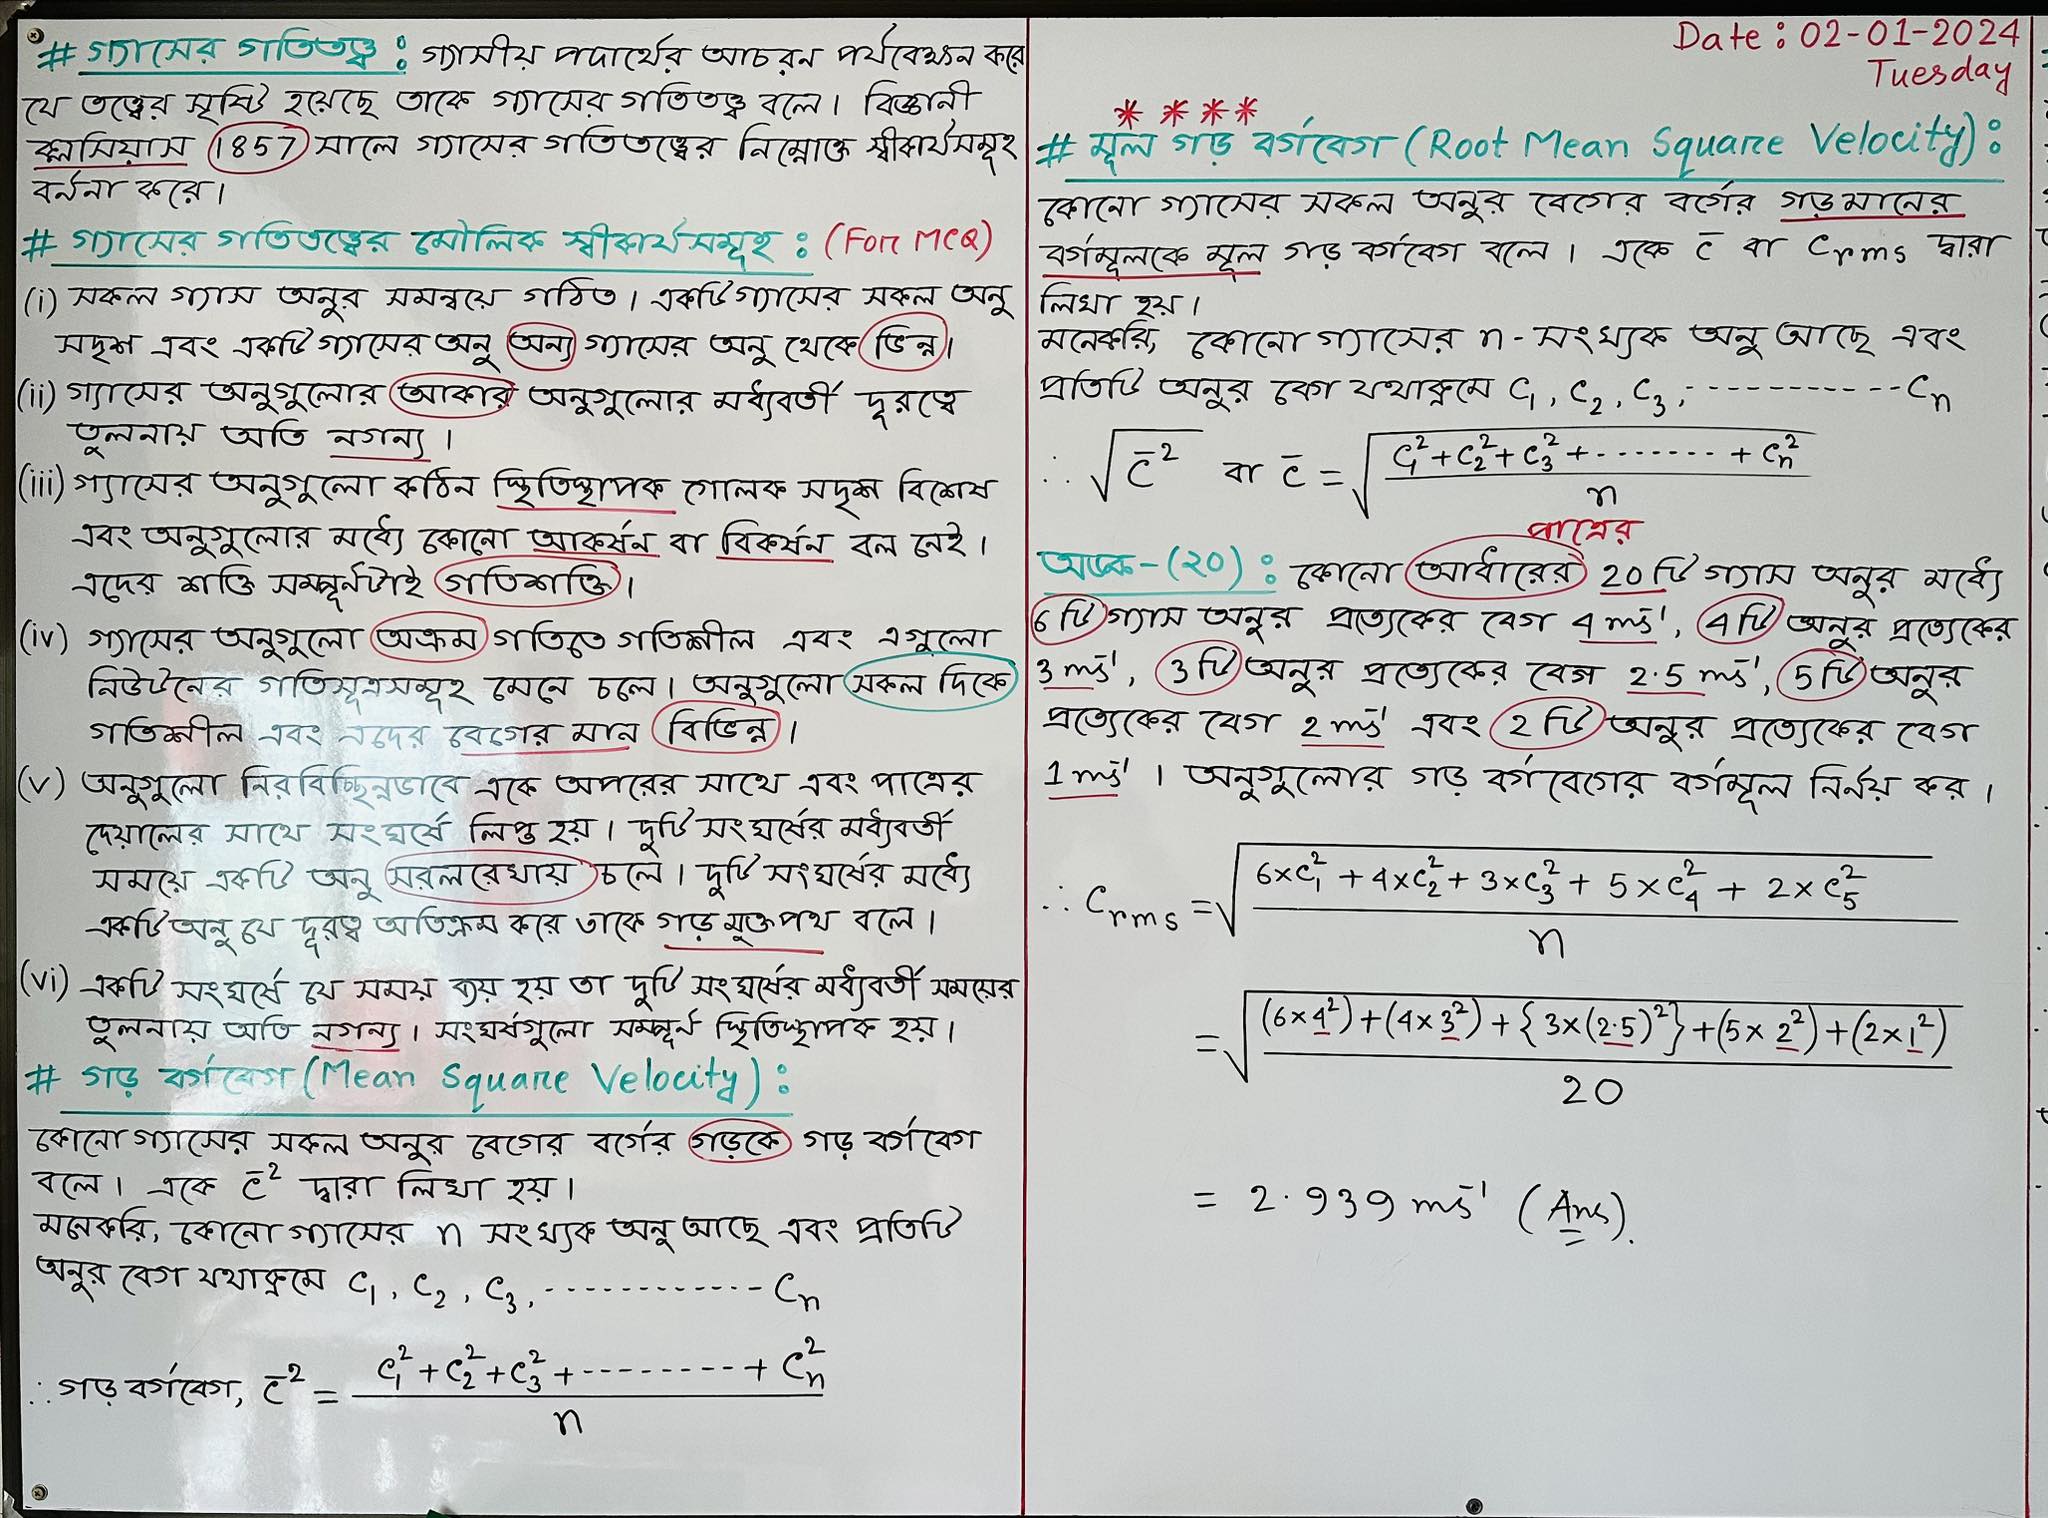 # গ্যাসের গতিতত্ত্ব : গ্যাসীয় পদার্থের আচরন পর্যবেক্ষন করে
যে তত্ত্বের সৃষ্টি হয়েছে তাকে গ্যাসের গতিতত্ত্ব বলে। বিজ্ঞানী
ক্লসিয়াস 1857 সালে গ্যাসের গতিতত্ত্বের নিম্নোক্ত স্বীকার্যসমূহ
বর্ননা করে।
# গ্যাসের গতিতত্ত্বের মৌলিক স্বীকার্যসমূহ : (For MCQ)
(i) সকল গ্যাস অনুর সমন্বয়ে গঠিত। একটি গ্যাসের সকল অনু
সদৃশ এবং একটি গ্যাসের অনু অন্য গ্যাসের অনু থেকে ভিন্ন।
(ii) গ্যাসের অনুগুলোর আকার অনুগুলোর মধ্যবর্তী দূরত্বে
তুলনায় অতি নগন্য।
(iii) গ্যাসের অনুগুলো কঠিন স্থিতিস্থাপক গোলক সদৃশ বিশেষ
এবং অনুগুলোর মধ্যে কোনো আকর্ষন বা বিকর্ষন বল নেই।
এদের শক্তি সম্পূর্নটাই গতিশক্তি।
(iv) গ্যাসের অনুগুলো অক্রম গতিতে গতিশীল এবং এগুলো
নিউটনের গতিসূত্রসমূহ মেনে চলে। অনুগুলো সকল দিকে
গতিশীল এবং এদের বেগের মান বিভিন্ন।
(v) অনুগুলো নিরবিচ্ছিন্নভাবে একে অপরের সাথে এবং পাত্রের
দেয়ালের সাথে সংঘর্ষে লিপ্ত হয়। দুটি সংঘর্ষের মধ্যবর্তী
সময়ে একটি অনু সরলরেখায় চলে। দুটি সংঘর্ষের মধ্যে
একটি অনু যে দূরত্ব অতিক্রম করে তাকে গড় মুক্তপথ বলে।
(vi) একটি সংঘর্ষে যে সময় ব্যয় হয় তা দুটি সংঘর্ষের মধ্যবর্তী সময়ের
তুলনায় অতি নগন্য। সংঘর্ষগুলো সম্পূর্ন স্থিতিস্থাপক হয়।
# গড় বর্গবেগ (Mean Square Velocity) :
কোনো গ্যাসের সকল অনুর বেগের বর্গের গড়কে গড় বর্গবেগ
বলে। একে c̄² দ্বারা লিখা হয়।
মনেকরি, কোনো গ্যাসের n সংখ্যক অনু আছে এবং প্রতিটি
অনুর বেগ যথাক্রমে c₁, c₂, c₃, ------------ cₙ
∴ গড় বর্গবেগ, c̄² = (c₁² + c₂² + c₃² + --------- + cₙ²) / n
Date : 02-01-2024
Tuesday
* * * *
# মূল গড় বর্গবেগ (Root Mean Square Velocity) :
কোনো গ্যাসের সকল অনুর বেগের বর্গের গড়মানের
বর্গমূলকে মূল গড় বর্গবেগ বলে। একে c̄ বা Crms দ্বারা
লিখা হয়।
মনেকরি, কোনো গ্যাসের n-সংখ্যক অনু আছে এবং
প্রতিটি অনুর বেগ যথাক্রমে c₁, c₂, c₃, ------------ cₙ
∴ √c̄² বা c̄ = √((c₁² + c₂² + c₃² + ------- + cₙ²) / n)
পাত্রের
অংক-(২০) : কোনো আধারের 20 টি গ্যাস অনুর মধ্যে
6 টি গ্যাস অনুর প্রত্যেকের বেগ 4 ms⁻¹, 4 টি অনুর প্রত্যেকের
3 ms⁻¹, 3 টি অনুর প্রত্যেকের বেগ 2.5 ms⁻¹, 5 টি অনুর
প্রত্যেকের বেগ 2 ms⁻¹ এবং 2 টি অনুর প্রত্যেকের বেগ
1 ms⁻¹। অনুগুলোর গড় বর্গবেগের বর্গমূল নির্নয় কর।
∴ Crms = √((6×c₁² + 4×c₂² + 3×c₃² + 5×c₄² + 2×c₅²) / n)
= √(((6×4²) + (4×3²) + {3×(2.5)²} + (5×2²) + (2×1²)) / 20)
= 2.939 ms⁻¹ (Ans).